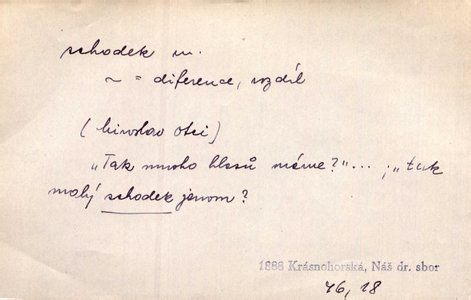 schodek m.
~ = diference, rozdíl
(Miroslav otci)
„Tak mnoho hlasů máme?“... ; „tak
malý schodek jenom?
1888 Krásnohorská, Náš dr. sbor
46, 18